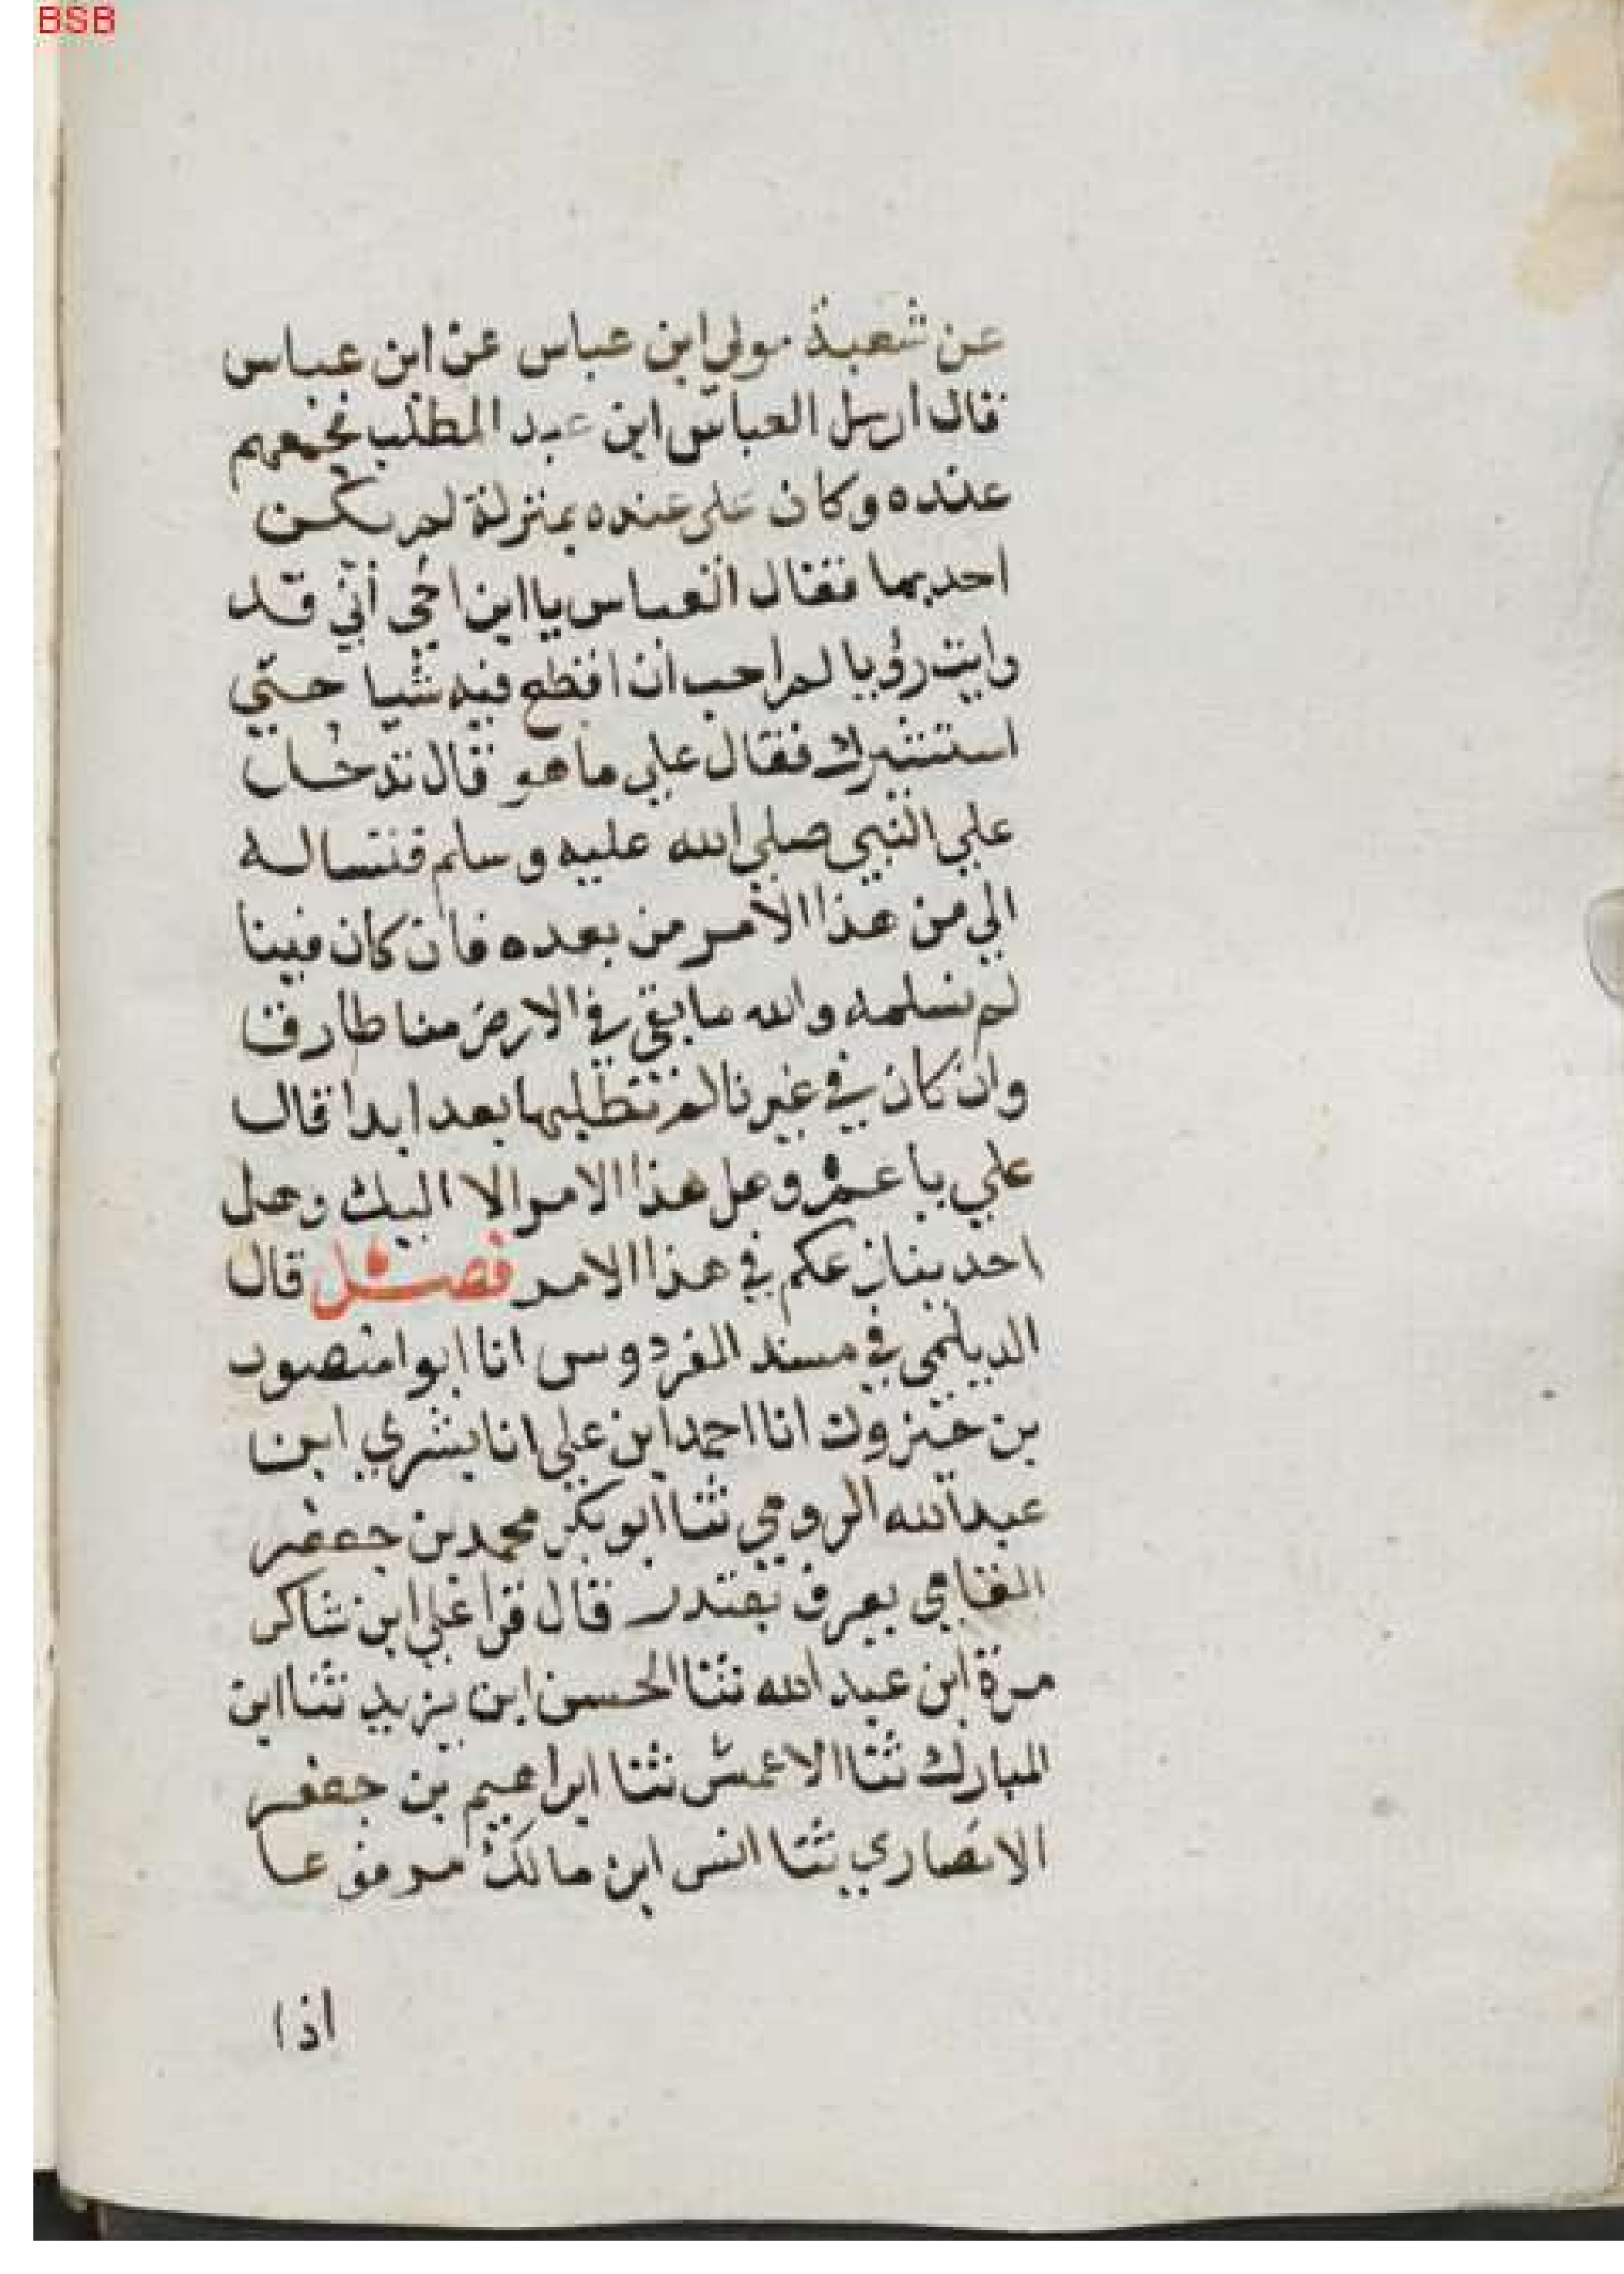 BSB
عن شعبة مولي ابن عباس عن ابن عباس
قال ارسل العباس ابن عبد المطلب فجمعهم
عنده وكان علي عنده بمنزلة لم يكن
احد بها فقال العباس يا ابن اخي اني قد
رايت رؤيا لم احب ان اقطع فيه شيا حتي
استشيرك فقال علي ما هو قال ندخل
علي النبي صلي الله عليه وسلم فنساله
الي من هذا الامر من بعده فان كان فينا
لم نسلمه والله ما بقي في الارض منا طارف
وان كان في غيرنا لم نطلبها بعد ابدا قال
علي يا عم وهل هذا الامر الا اليك وهل
احد ينازعكم في هذا الامر فصل قال
الديلمي في مسند الفردوس انا ابوا منصور
بن خيرون انا احمد ابن علي انا بشري ابن
عبد الله الرومي ثنا ابو بكر محمد بن جعفر
يعرف قال قرا علي ابن شاكر
مرة ابن عبد الله ثنا الحسن ابن يزيد ثنا ابن
المبارك ثنا الاعمش ثنا ابراهيم بن جعفر
الانصاري ثنا انس ابن مالك مرفوعا
اذا